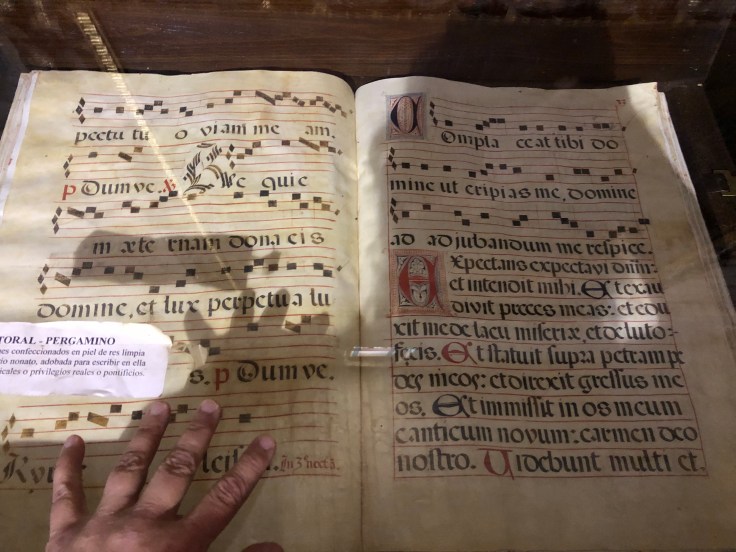 pectu tu o viam me am.
p Dum ve. ℟. Re quie
m æte rnam dona eis
domine, et lux perpetua lu
TORAL - PERGAMINO
nes confeccionados en piel de res limpia
rio nonato, adobada para escribir en ella
icales o privilegios reales o pontificios.
s. p Dum ve.
Kyri leison
Compla ceat tibi do
mine ut eripias me, domine
ad adjubandum me respice.
Expectans expectavi dñm:
et intendit mihi. Et exau
divit preces meas: et edu
xit me de lacu miseriæ, et de luto
fecis. Et statuit supra petram pe
des meos: et direxit gressus me
os. Et immissit in os meum
canticum novum: carmen deo
nostro. Videbunt multi et.